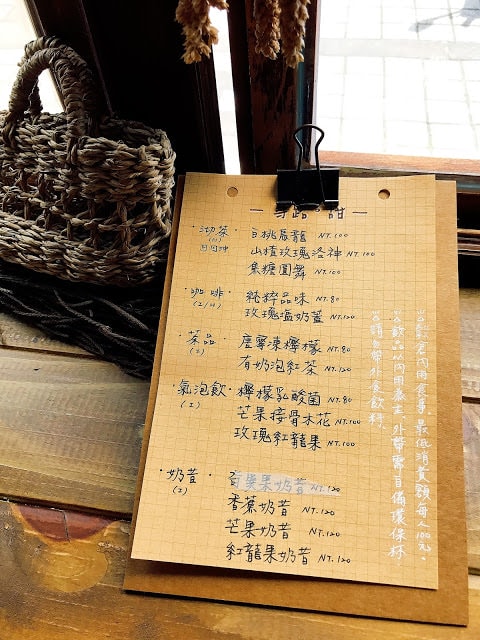 甜 —
沏茶 白桃烏龍 NT.100
(H) 山楂玫瑰洛神 NT.100
可回沖 焦糖圓舞 NT.100
咖啡 純粹品味 NT.80
(I/H) 玫瑰鹽奶蓋 NT.120
茶品 唐寧凍檸檬 NT.80
(I) 有奶泡紅茶 NT.120
氣泡飲 檸檬乳酸菌 NT.80
(I) 芒果接骨木花 NT.100
玫瑰紅龍果 NT.100
奶昔 百果奶昔 NT.120
(I) 香蕉奶昔 NT.120
芒果奶昔 NT.120
紅龍果奶昔 NT.120
最低消費額每人100元.
飲品以內用為主,外帶需自備環保杯.
請勿帶外食飲料.